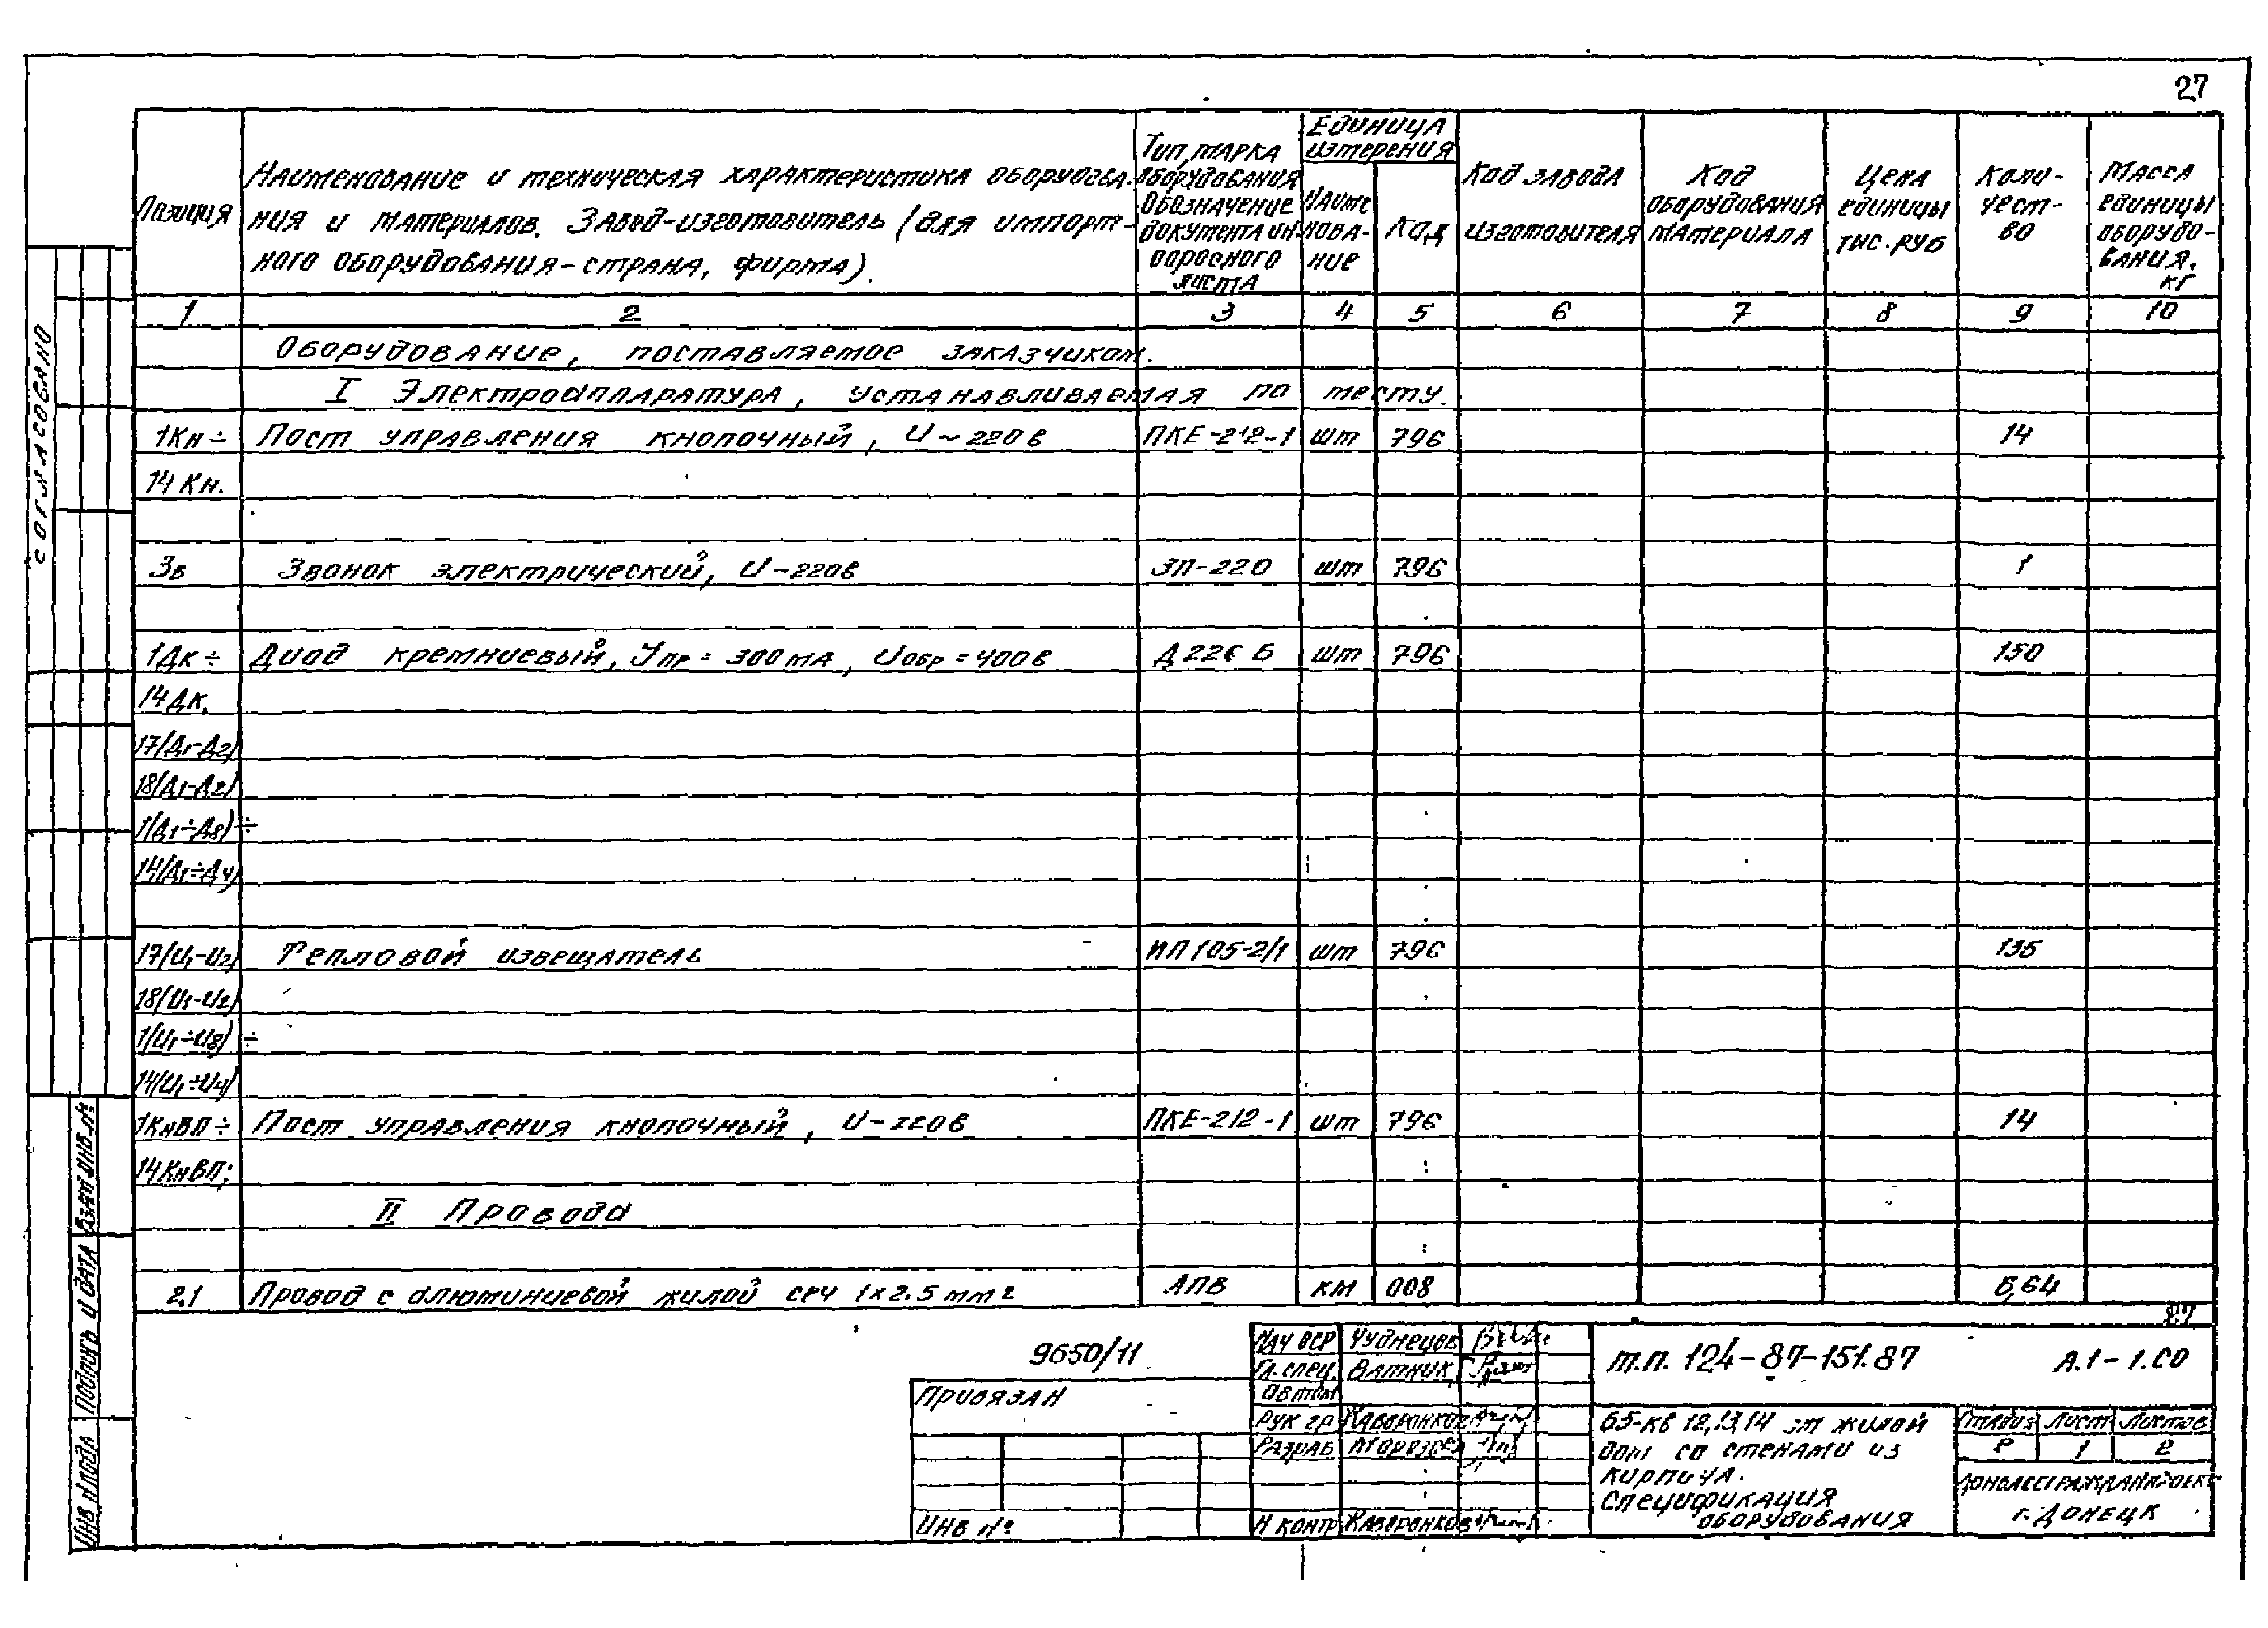 27
Позиция
Наименование и техническая характеристика оборудова-
ния и материалов. Завод-изготовитель (для импорт-
ного оборудования-страна, фирма).
Тип, марка
оборудования
Обозначение
документа и
опросного
листа
Единица
измерения
Наиме
нова-
ние
Код
Код завода
изготовителя
Код
оборудования
материала
Цена
единицы
тыс. руб
Коли-
чест-
во
Масса
единицы
оборудо-
вания,
кг
1 2 3 4 5 6 7 8 9 10
Оборудование, поставляемое заказчиком.
I Электроаппаратура, устанавливаемая по месту.
1Кн÷ Пост управления кнопочный, U~220в ПКЕ-212-1 шт 796 14
14Кн.
Зв Звонок электрический, U~220в ЗП-220 шт 796 1
1Дк÷ Диод кремниевый, Jпр=300mA, Uобр=400в Д226Б шт 796 150
14Дк.
17/Д1-Д2/
18/Д1-Д2/
1/Д1÷Д8/÷
14/Д1÷Д4/
17/U1-U2/ Тепловой извещатель ИП105-2/1 шт 796 135
18/U1-U2/
1/U1÷U8/÷
14/U1÷U4/
1КнВП÷ Пост управления кнопочный, U~220в ПКЕ-212-1 шт 796 14
14КнВП;
II Провода
2.1 Провод с алюминиевой жилой сеч 1х2.5мм2 АПВ км 008 8,64
27
9650/11
Привязан
Инв №
Нач ВСР Чуднецов
Гл. спец. Вятник
автом
Рук гр
Разраб
Н контр
т.п. 124-87-151.87 А.1-1.СО
65-кв 12,13,14 эт жилой
дом со стенами из
кирпича.
Спецификация
оборудования
Стадия Лист Листов
Р 1 2
Донбассгражданпроект
г. Донецк
Согласовано
Взам инв №
Подпись и дата
Инв № подл